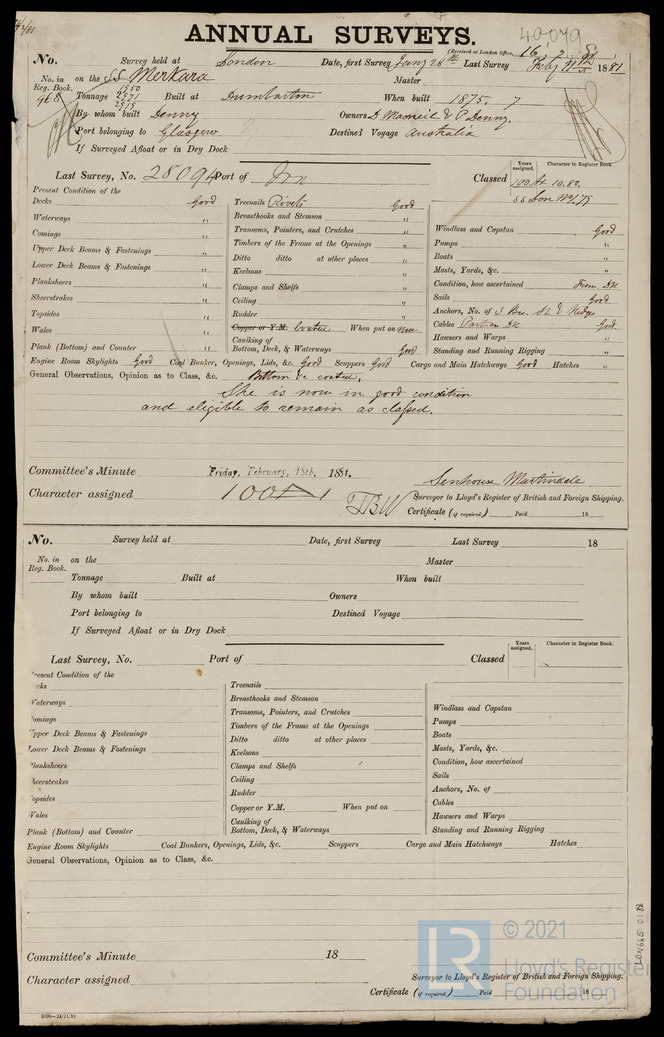 ANNUAL SURVEYS.
40079
(Received at London Office, 16.2.81
No. Survey held at London Date, first Survey Jany 28th Last Survey Feby 1881
No. in Reg. Book. on the SS Merkara Master
968 Tonnage 1550 2971 2915 Built at Dumbarton When built 1875. 7
By whom built Denny Owners D Macneil & P Denny.
Port belonging to Glasgow Destined Voyage Australia
If Surveyed Afloat or in Dry Dock
Years assigned. Character in Register Book.
Last Survey, No. 28094 Port of Lon Classed 100 A1 10.80.
SS Lon No1.79
Present Condition of the
Decks Good Treenails Rivets Good
Waterways " Breasthooks and Stemson "
Comings " Transoms, Pointers, and Crutches " Windlass and Capstan Good
Upper Deck Beams & Fastenings " Timbers of the Frame at the Openings " Pumps "
Lower Deck Beams & Fastenings " Ditto ditto at other places " Boats "
Planksheers " Keelsons " Masts, Yards, &c. "
Sheerstrakes " Clamps and Shelfs " Condition, how ascertained From Dk
Topsides " Ceiling " Sails Good
Wales " Rudder " Anchors, No. of 3 Bow. St & Kedge
Plank (Bottom) and Counter " Copper or Y.M. Coated When put on now Cables Part on Dk Good
Caulking of Bottom, Deck, & Waterways Good Hawsers and Warps "
Standing and Running Rigging "
Engine Room Skylights Good Coal Bunker, Openings, Lids, &c. Good Scuppers Good Cargo and Main Hatchways Good Hatches "
General Observations, Opinion as to Class, &c. Bottom re coated.
She is now in good condition
and eligible to remain as classed.
Committee's Minute Friday, February, 18th, 1881.
Character assigned 100A1
Senhouse Martindale
Surveyor to Lloyd's Register of British and Foreign Shipping.
Certificate (if required) Paid 18
No. Survey held at Date, first Survey Last Survey 18
No. in Reg. Book. on the Master
Tonnage Built at When built
By whom built Owners
Port belonging to Destined Voyage
If Surveyed Afloat or in Dry Dock
Years assigned. Character in Register Book.
Last Survey, No. Port of Classed
Present Condition of the
Decks Treenails
Waterways Breasthooks and Stemson
Comings Transoms, Pointers, and Crutches Windlass and Capstan
Upper Deck Beams & Fastenings Timbers of the Frame at the Openings Pumps
Lower Deck Beams & Fastenings Ditto ditto at other places Boats
Planksheers Keelsons Masts, Yards, &c.
Sheerstrakes Clamps and Shelfs Condition, how ascertained
Topsides Ceiling Sails
Wales Rudder Anchors, No. of
Plank (Bottom) and Counter Copper or Y.M. When put on Cables
Caulking of Bottom, Deck, & Waterways Hawsers and Warps
Standing and Running Rigging
Engine Room Skylights Coal Bunkers, Openings, Lids, &c. Scuppers Cargo and Main Hatchways Hatches
General Observations, Opinion as to Class, &c.
Committee's Minute 18
Character assigned
Surveyor to Lloyd's Register of British and Foreign Shipping.
Certificate (if required) Paid 18
LR © 2021
Lloyd's Register
Foundation
LON665 0138